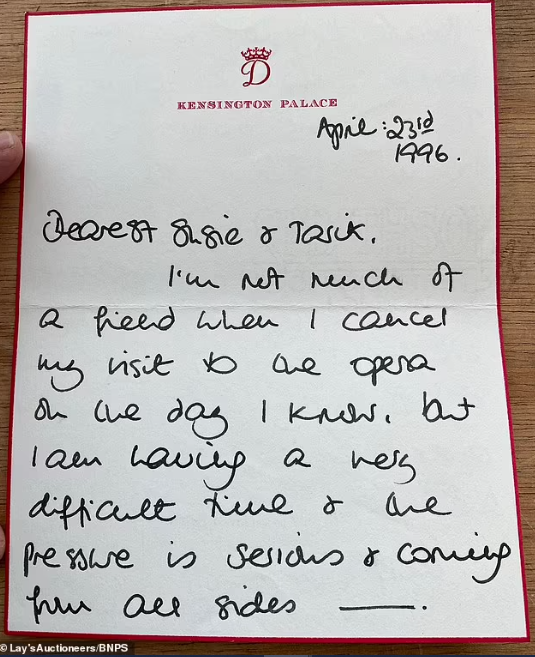 D
KENSINGTON PALACE
April: 23rd
1996.
Dearest Susie & Tarik,
I'm not much of
a friend when I cancel
my visit to the opera
on the day I know, but
I am having a very
difficult time & the
pressure is serious & coming
from all sides —.
© Lay'sAuctioneers/BNPS